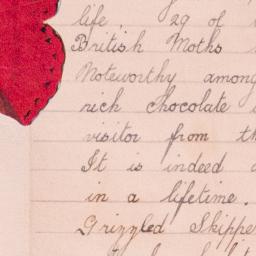 life, 29 of
British Moths
Noteworthy among
rich chocolate
visitor from th
It is indeed
in a lifetime.
Grizzled Skippe